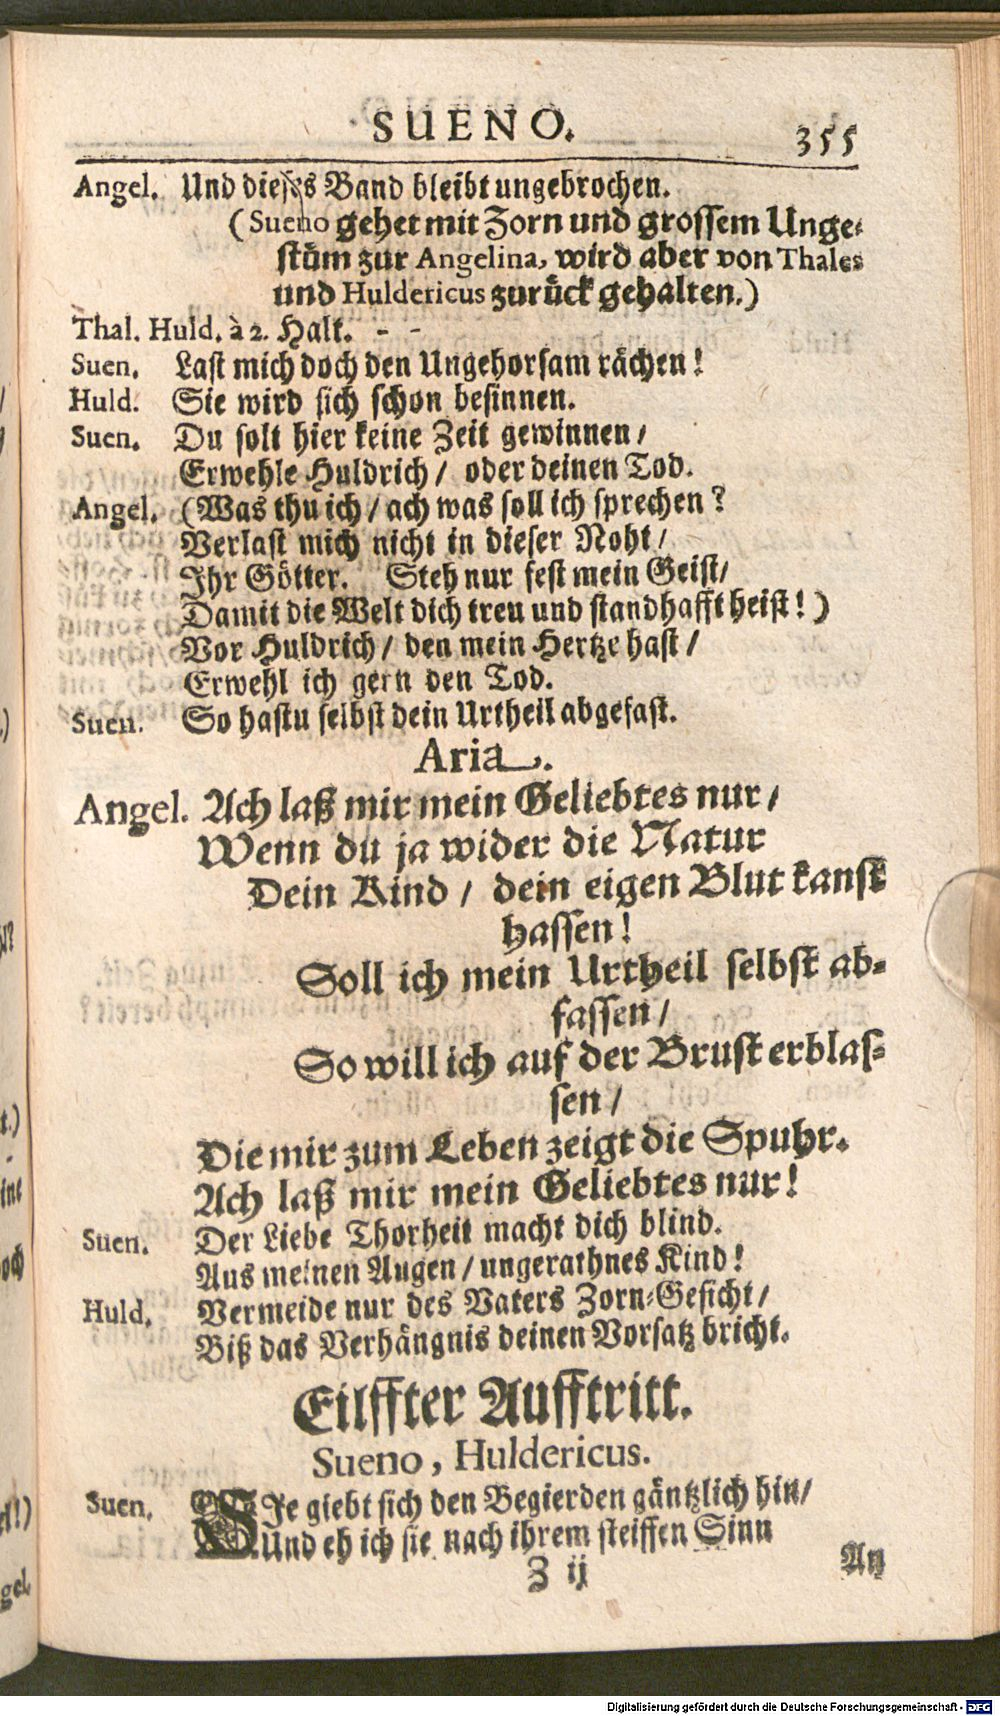 SUENO. 355
Angel. Und dieses Band bleibt ungebrochen.
(Sueno gehet mit Zorn und grossem Unge-
stüm zur Angelina, wird aber von Thales
und Huldericus zurück gehalten.)
Thal. Huld. à 2. Halt. - -
Suen. Last mich doch den Ungehorsam rächen!
Huld. Sie wird sich schon besinnen.
Suen. Du solt hier keine Zeit gewinnen/
Erwehle Huldrich/ oder deinen Tod.
Angel. (Was thu ich/ ach was soll ich sprechen?
Verlast mich nicht in dieser Noht/
Ihr Götter. Steh nur fest mein Geist/
Damit die Welt dich treu und standhafft heist!)
Vor Huldrich/ den mein Hertze hast/
Erwehl ich gern den Tod.
Suen. So hastu selbst dein Urtheil abgefast.
Aria.
Angel. Ach laß mir mein Geliebtes nur/
Wenn du ja wider die Natur
Dein Kind/ dein eigen Blut kanst
hassen!
Soll ich mein Urtheil selbst ab-
fassen/
So will ich auf der Brust erblas-
sen/
Die mir zum Leben zeigt die Spuhr.
Ach laß mir mein Geliebtes nur!
Suen. Der Liebe Thorheit macht dich blind.
Aus meinen Augen/ ungerathnes Kind!
Huld. Vermeide nur des Vaters Zorn-Gesicht/
Biß das Verhängnis deinen Vorsatz bricht.
Eilffter Aufftritt.
Sueno, Huldericus.
Suen. SIe giebt sich den Begierden gäntzlich hin/
Und eh ich sie nach ihrem steiffen Sinn
Z ij An
Digitalisierung gefördert durch die Deutsche Forschungsgemeinschaft - DFG